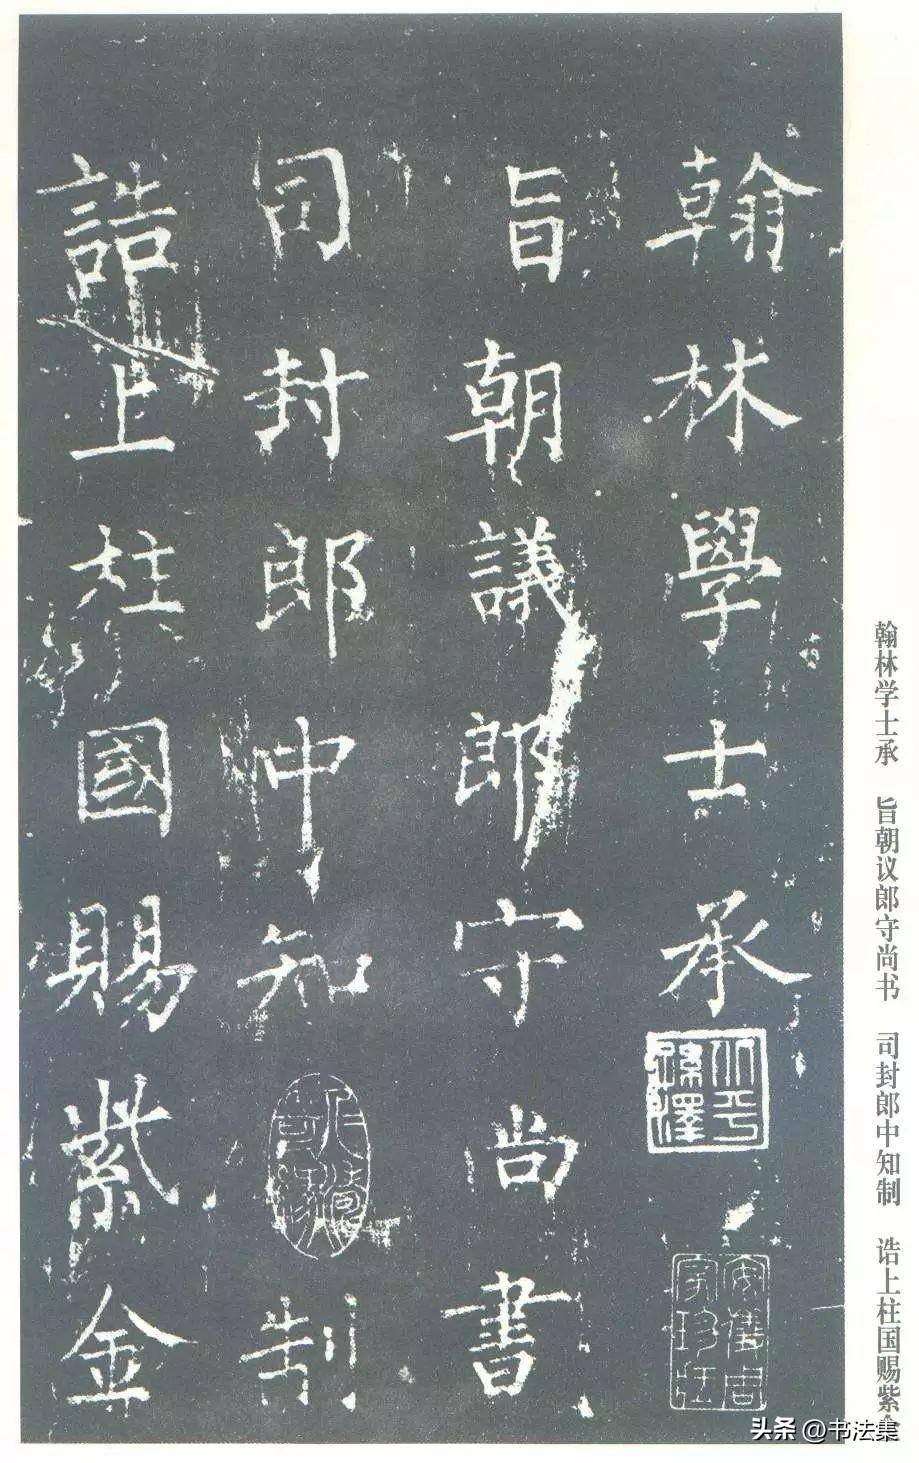 翰林學士承
旨朝議郎守尚書
司封郎中知制
誥上柱國賜紫金
翰林学士承　旨朝议郎守尚书　司封郎中知制　诰上柱国赐紫金
头条 @书法集